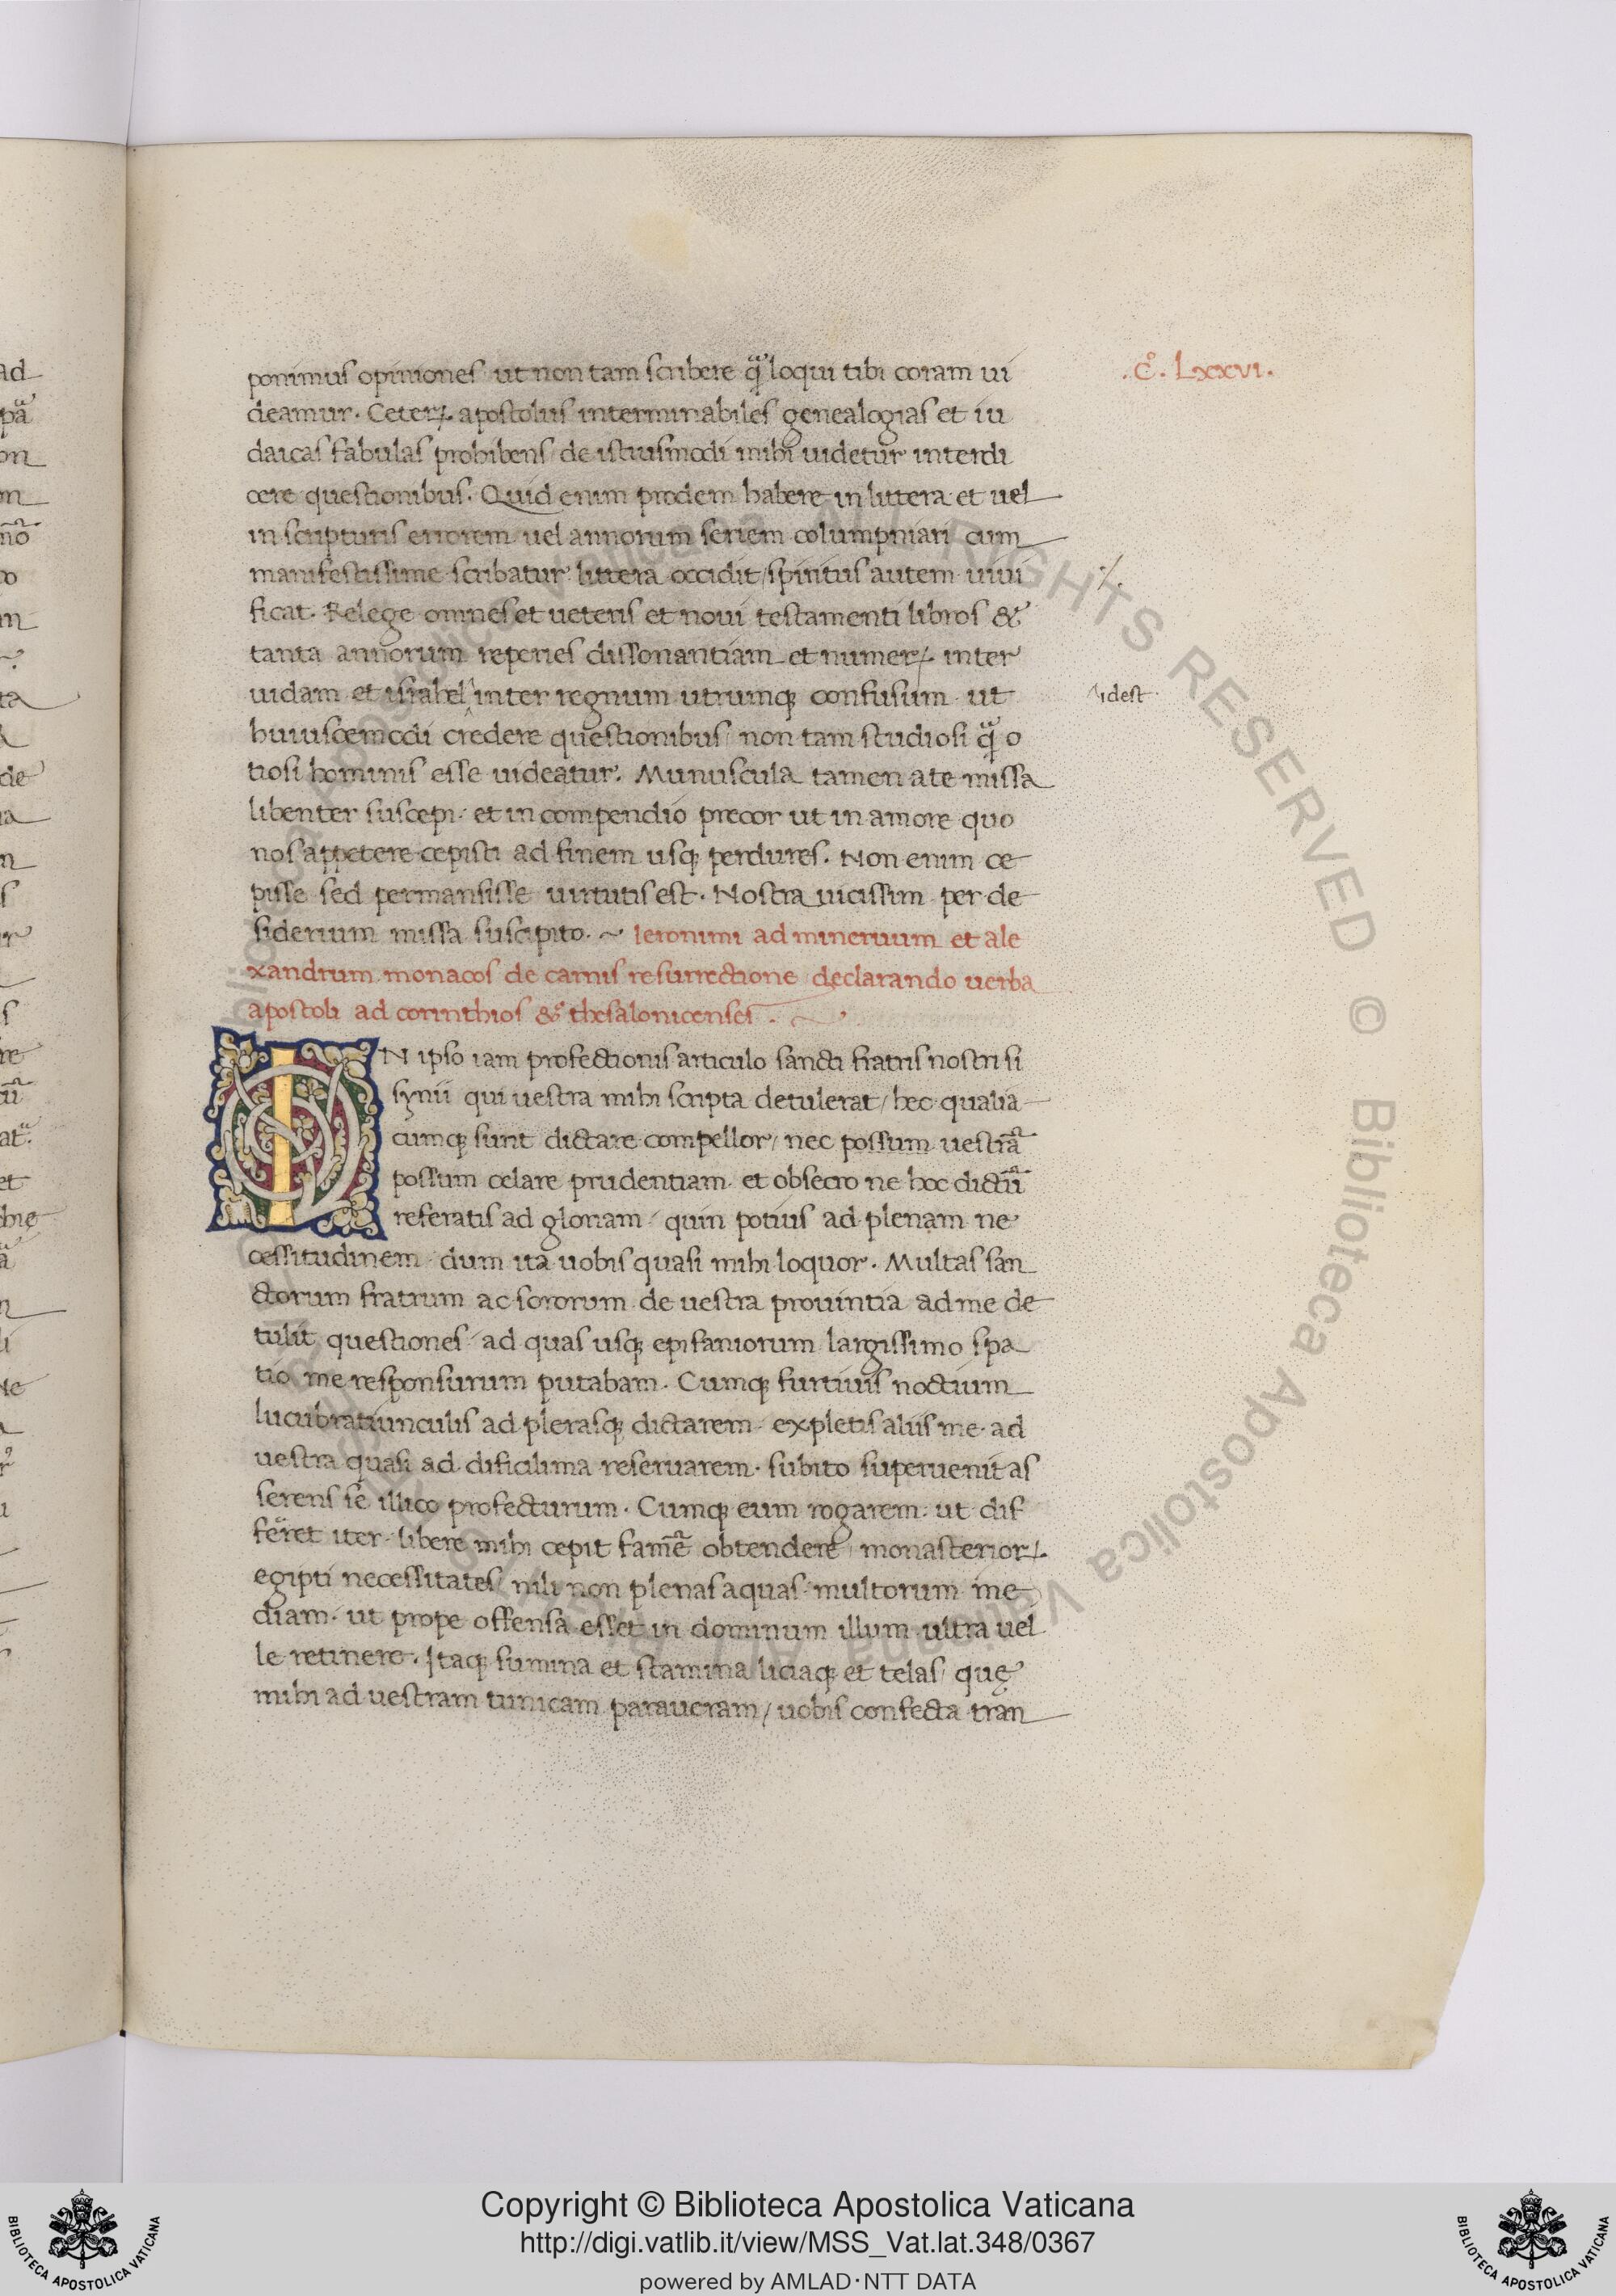 ponimus opiniones ut non tam scribere q̃ loqui tibi coram ui
.c̊. Lxxvi.
deamur. Ceteꝝ apostolus interminabiles genealogias et iu
daicas fabulas prohibens / de istiusmodi mihi uidetur interdi
cere questionibus. Quid enim prodem habere in littera et uel
in scripturis errorem uel annorum seriem columpniari cum
manifestissime scribatur littera occidit / spiritus autem uiui
ficat. Relege omnes et ueteris et noui testamenti libros &
tanta annorum reperies dissonantiam et numeꝝ inter
uidam et israhel ^ inter regnum utrumq; confusum ut
^idest.
huiuscemodi credere questionibus / non tam studiosi q̃ o
tiosi hominis esse uideatur. Munuscula tamen ate missa
libenter suscepi. et in compendio precor ut in amore quo
nos appetere cepisti ad finem usq; perdures. Non enim ce
pisse sed permansisse uirtutis est. Nostra uicissim per de
siderium missa suscipito. ~ Ieronimi ad mineruium et ale
xandrum monacos de carnis resurrectione declarando uerba
apostoli ad corinthios & thesalonicenses. ~
IN ipso iam profectionis articulo sancti fratris nostri si
synii qui uestra mihi scripta detulerat / hec qualia
cumq; sunt dictare compellor / nec possum uestrã
possum celare prudentiam et obsecro ne hoc dictũ
referatis ad gloriam / quin potius ad plenam ne
cessitudinem dum ita uobis quasi mihi loquor. Multas san
ctorum fratrum ac sororum de uestra prouintia ad me de
tulit questiones / ad quas usq; epifaniorum largissimo spa
tio me responsurum putabam. Cumq; furtiuis noctium
lucubratiunculis ad plerasq; dictarem expletis aliis me ad
uestra quasi ad dificilima reseruarem. subito superuenit as
serens se illico profecturum. Cumq; eum rogarem ut dif
ferret iter. libere mihi cepit famẽ obtendere / monasterioꝝ
egipti necessitates / nili non plenas aquas multorum ine
diam. ut prope offensa esset in dominum illum ultra uel
le retinere. Itaq; sumina et stamina liciaq; et telas / quę
mihi ad uestram tunicam paraueram / uobis confecta tran
Copyright © Biblioteca Apostolica Vaticana
http://digi.vatlib.it/view/MSS_Vat.lat.348/0367
powered by AMLAD·NTT DATA